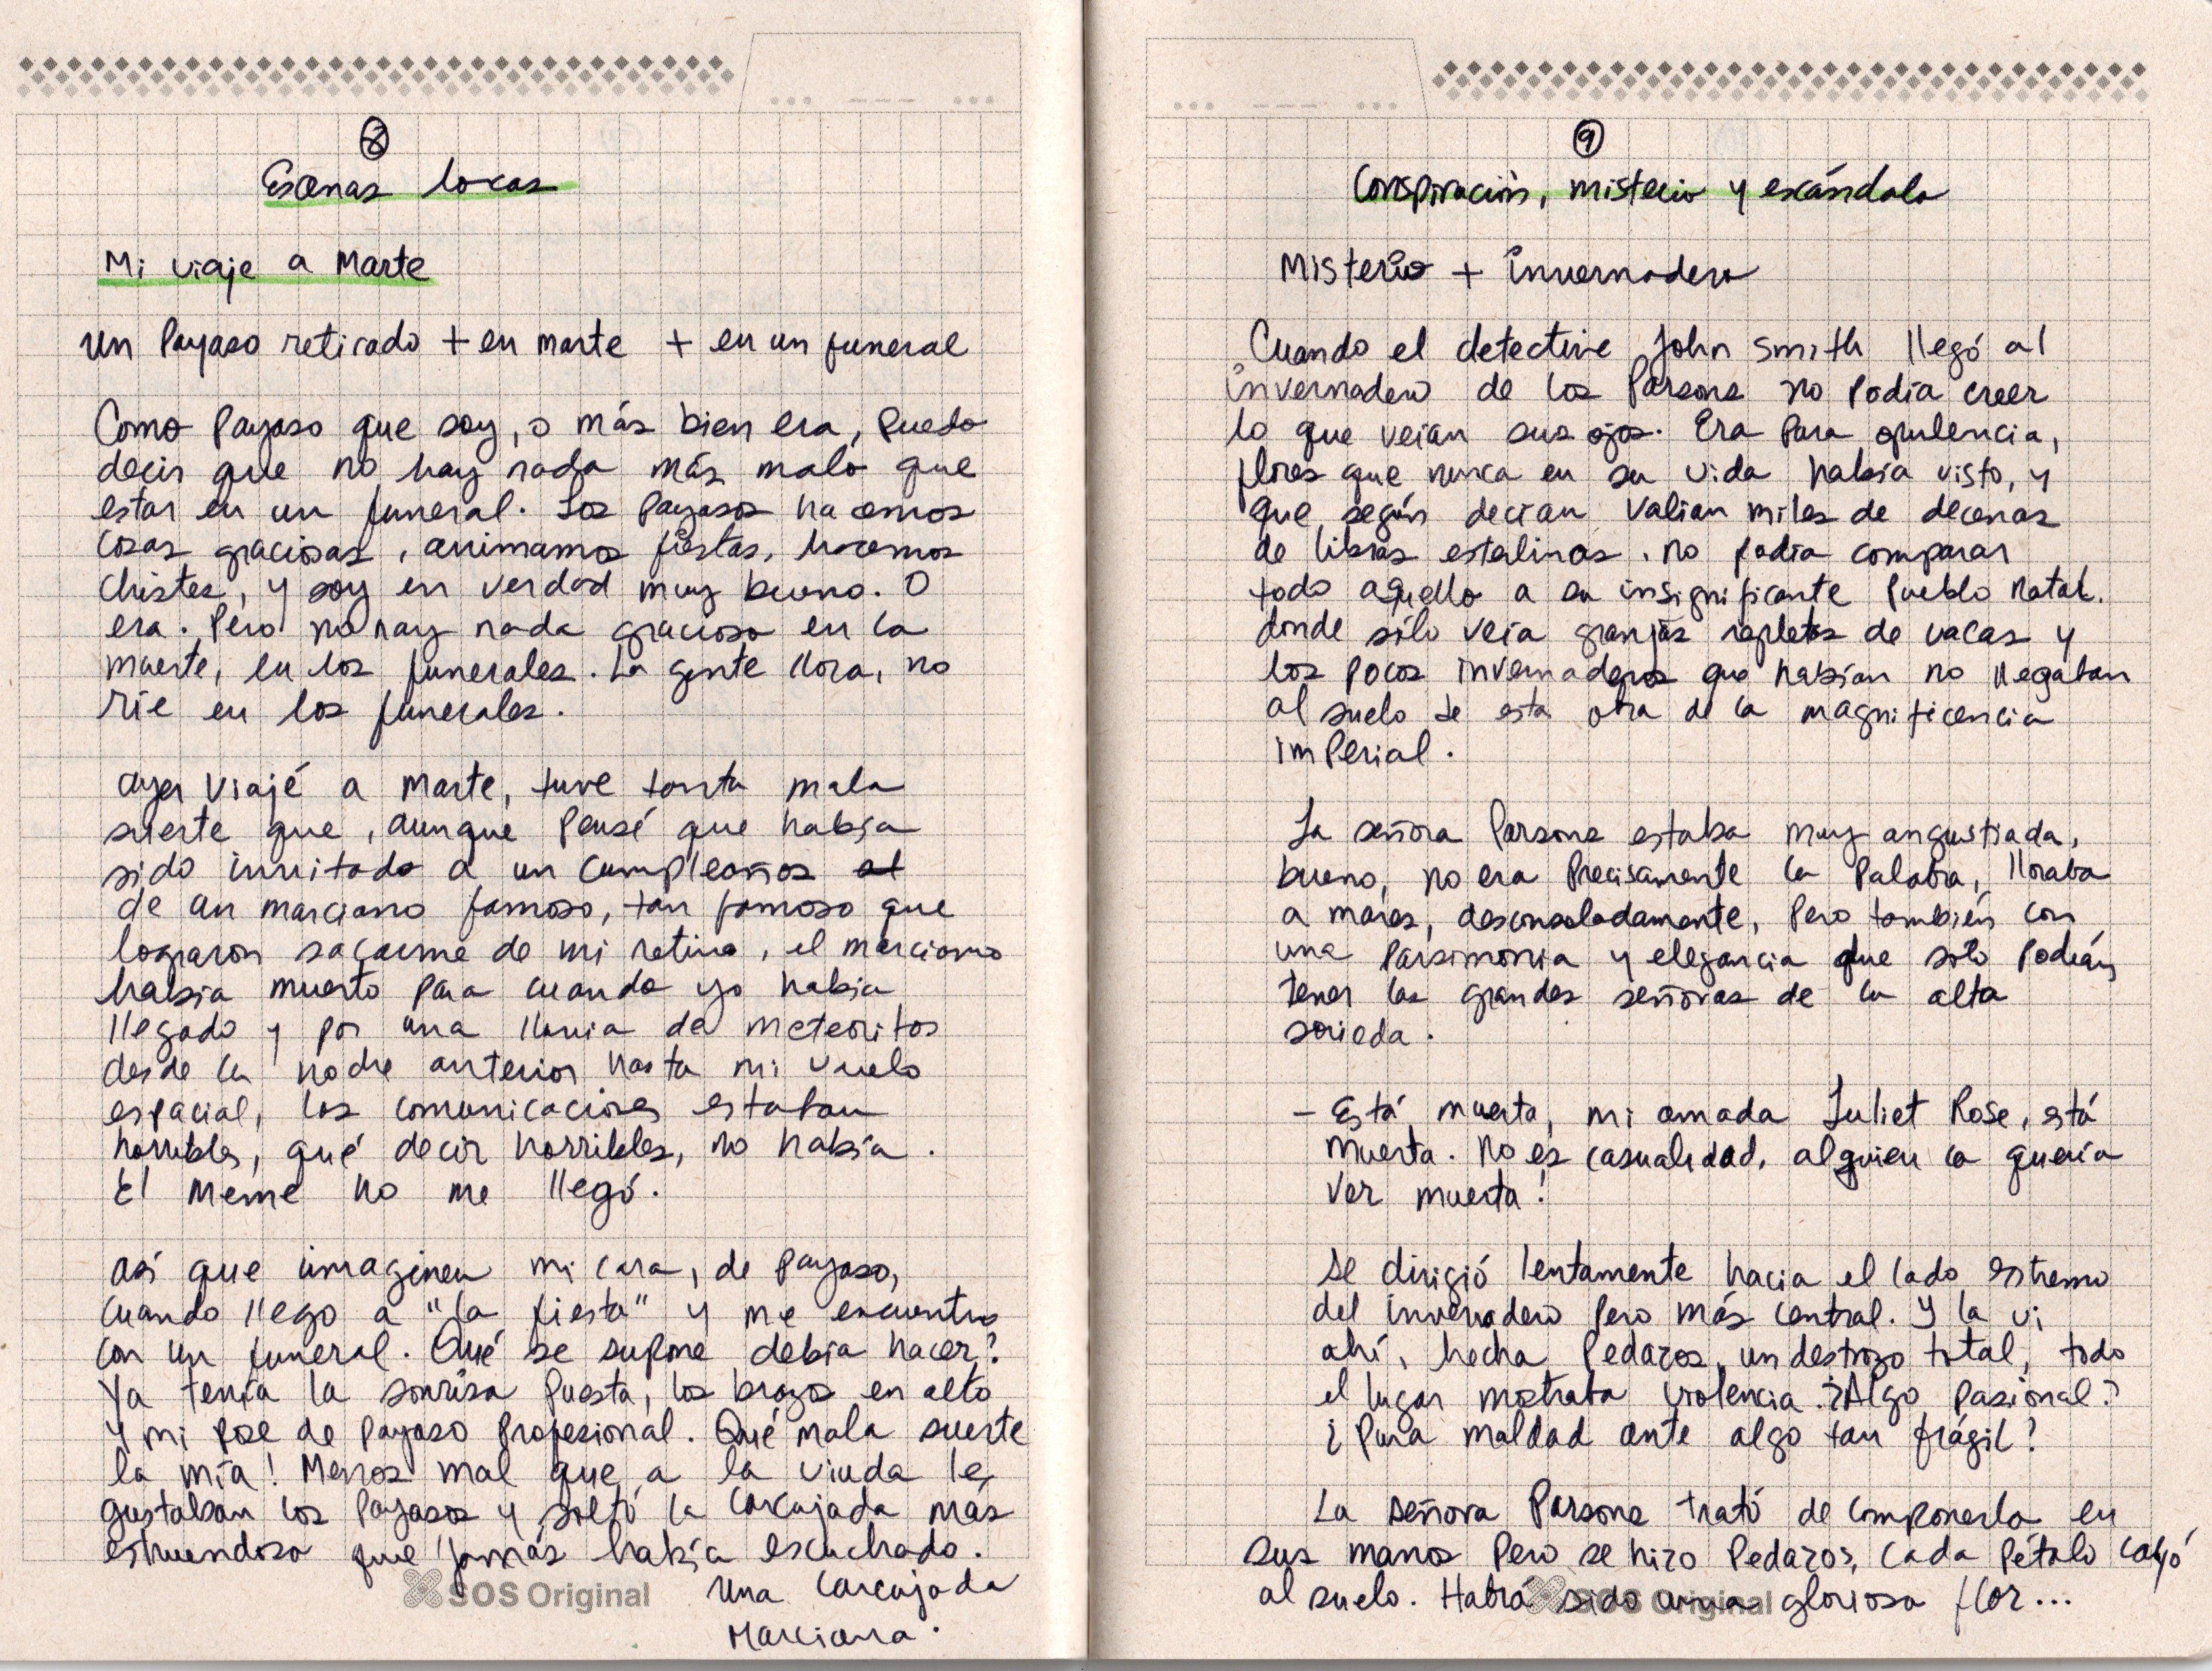 8
Escenas locas
Mi viaje a Marte
un Payaso retirado + en marte + en un funeral
Como Payaso que soy, o más bien era, Puedo
decir que no hay nada más malo que
estar en un funeral. Los Payasos hacemos
cosas graciosas, animamos fiestas, hacemos
chistes, y soy en verdad muy bueno. O
era. Pero no hay nada gracioso en la
muerte, en los funerales. La gente llora, no
ríe en los funerales.
ayer viajé a Marte, tuve tanta mala
suerte que, aunque Pensé que había
sido invitado a un cumpleaños el
de un marciano famoso, tan famoso que
lograron sacarme de mi retiro, el marciano
había muerto para cuando yo había
llegado y por una lluvia de meteoritos
desde la noche anterior hasta mi vuelo
espacial, las comunicaciones estaban
horribles, qué decir horribles, no había.
El Meme no me llegó.
así que imaginen mi cara, de payaso,
cuando llego a "la fiesta" y me encuentro
con un funeral. Qué se supone debía hacer?
Ya tenía la sonrisa Puesta, los brazos en alto
y mi pose de payaso Profesional. Qué mala suerte
la mía! Menos mal que a la viuda le
gustaban los Payasos y soltó la carcajada más
estruendosa que jamás había escuchado.
una carcajada
Marciana.
SOS Original
9
Conspiración, misterio y escándalo
Misterio + invernadero
Cuando el detective John Smith llegó al
invernadero de los Parsons no podía creer
lo que veían sus ojos. Era Pura opulencia,
flores que nunca en su vida había visto, y
que según decían valían miles de decenas
de libras esterlinas. no podía comparar
todo aquello a su insignificante Pueblo Natal.
donde sólo veía granjas repletas de vacas y
los pocos invernaderos que habían no llegaban
al suelo de esta obra de la magnificencia
imperial.
La señora Parsons estaba muy angustiada,
bueno, no era Precisamente la Palabra, lloraba
a mares, desconsoladamente, Pero también con
una Parsimonia y elegancia que solo podían
tener las grandes señoras de la alta
socieda.
- Está muerta, mi amada Juliet Rose, está
Muerta. No es casualidad, alguien la quería
ver muerta!
Se dirigió lentamente hacia el lado extremo
del invernadero pero más central. Y la vi
ahí, hecha Pedazos, un destrozo total, todo
el lugar mostraba violencia. ¿Algo pasional?
¿Pura maldad ante algo tan frágil?
La señora Parsons trató de componerla en
sus manos Pero se hizo Pedazos, cada Pétalo cayó
al suelo. Habrá sido una gloriosa flor...
SOS Original